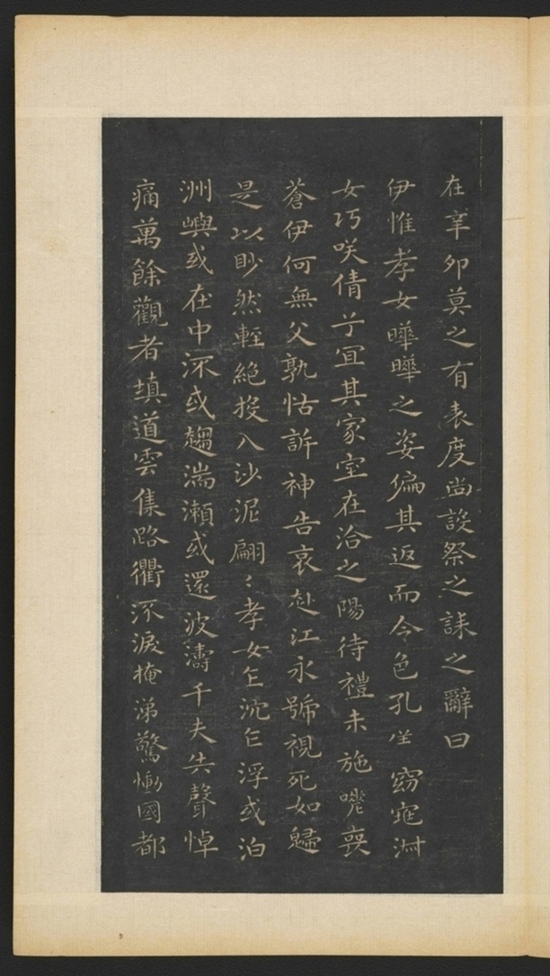 在辛卯莫之有表度尚設祭之誄之辭曰
伊惟孝女曄曄之姿偏其返而令色孔㘴窈窕淑
女巧咲倩兮宜其家室在洽之陽待禮未施嗟喪
蒼伊何無父孰怙訴神告哀赴江永號視死如歸
是以眇然輕絕投入沙泥翩〻孝女乍沉乍浮或泊
洲嶼或在中流或趨湍瀨或還波濤千夫失聲悼
痛萬餘觀者填道雲集路衢流淚掩涕驚慟國都